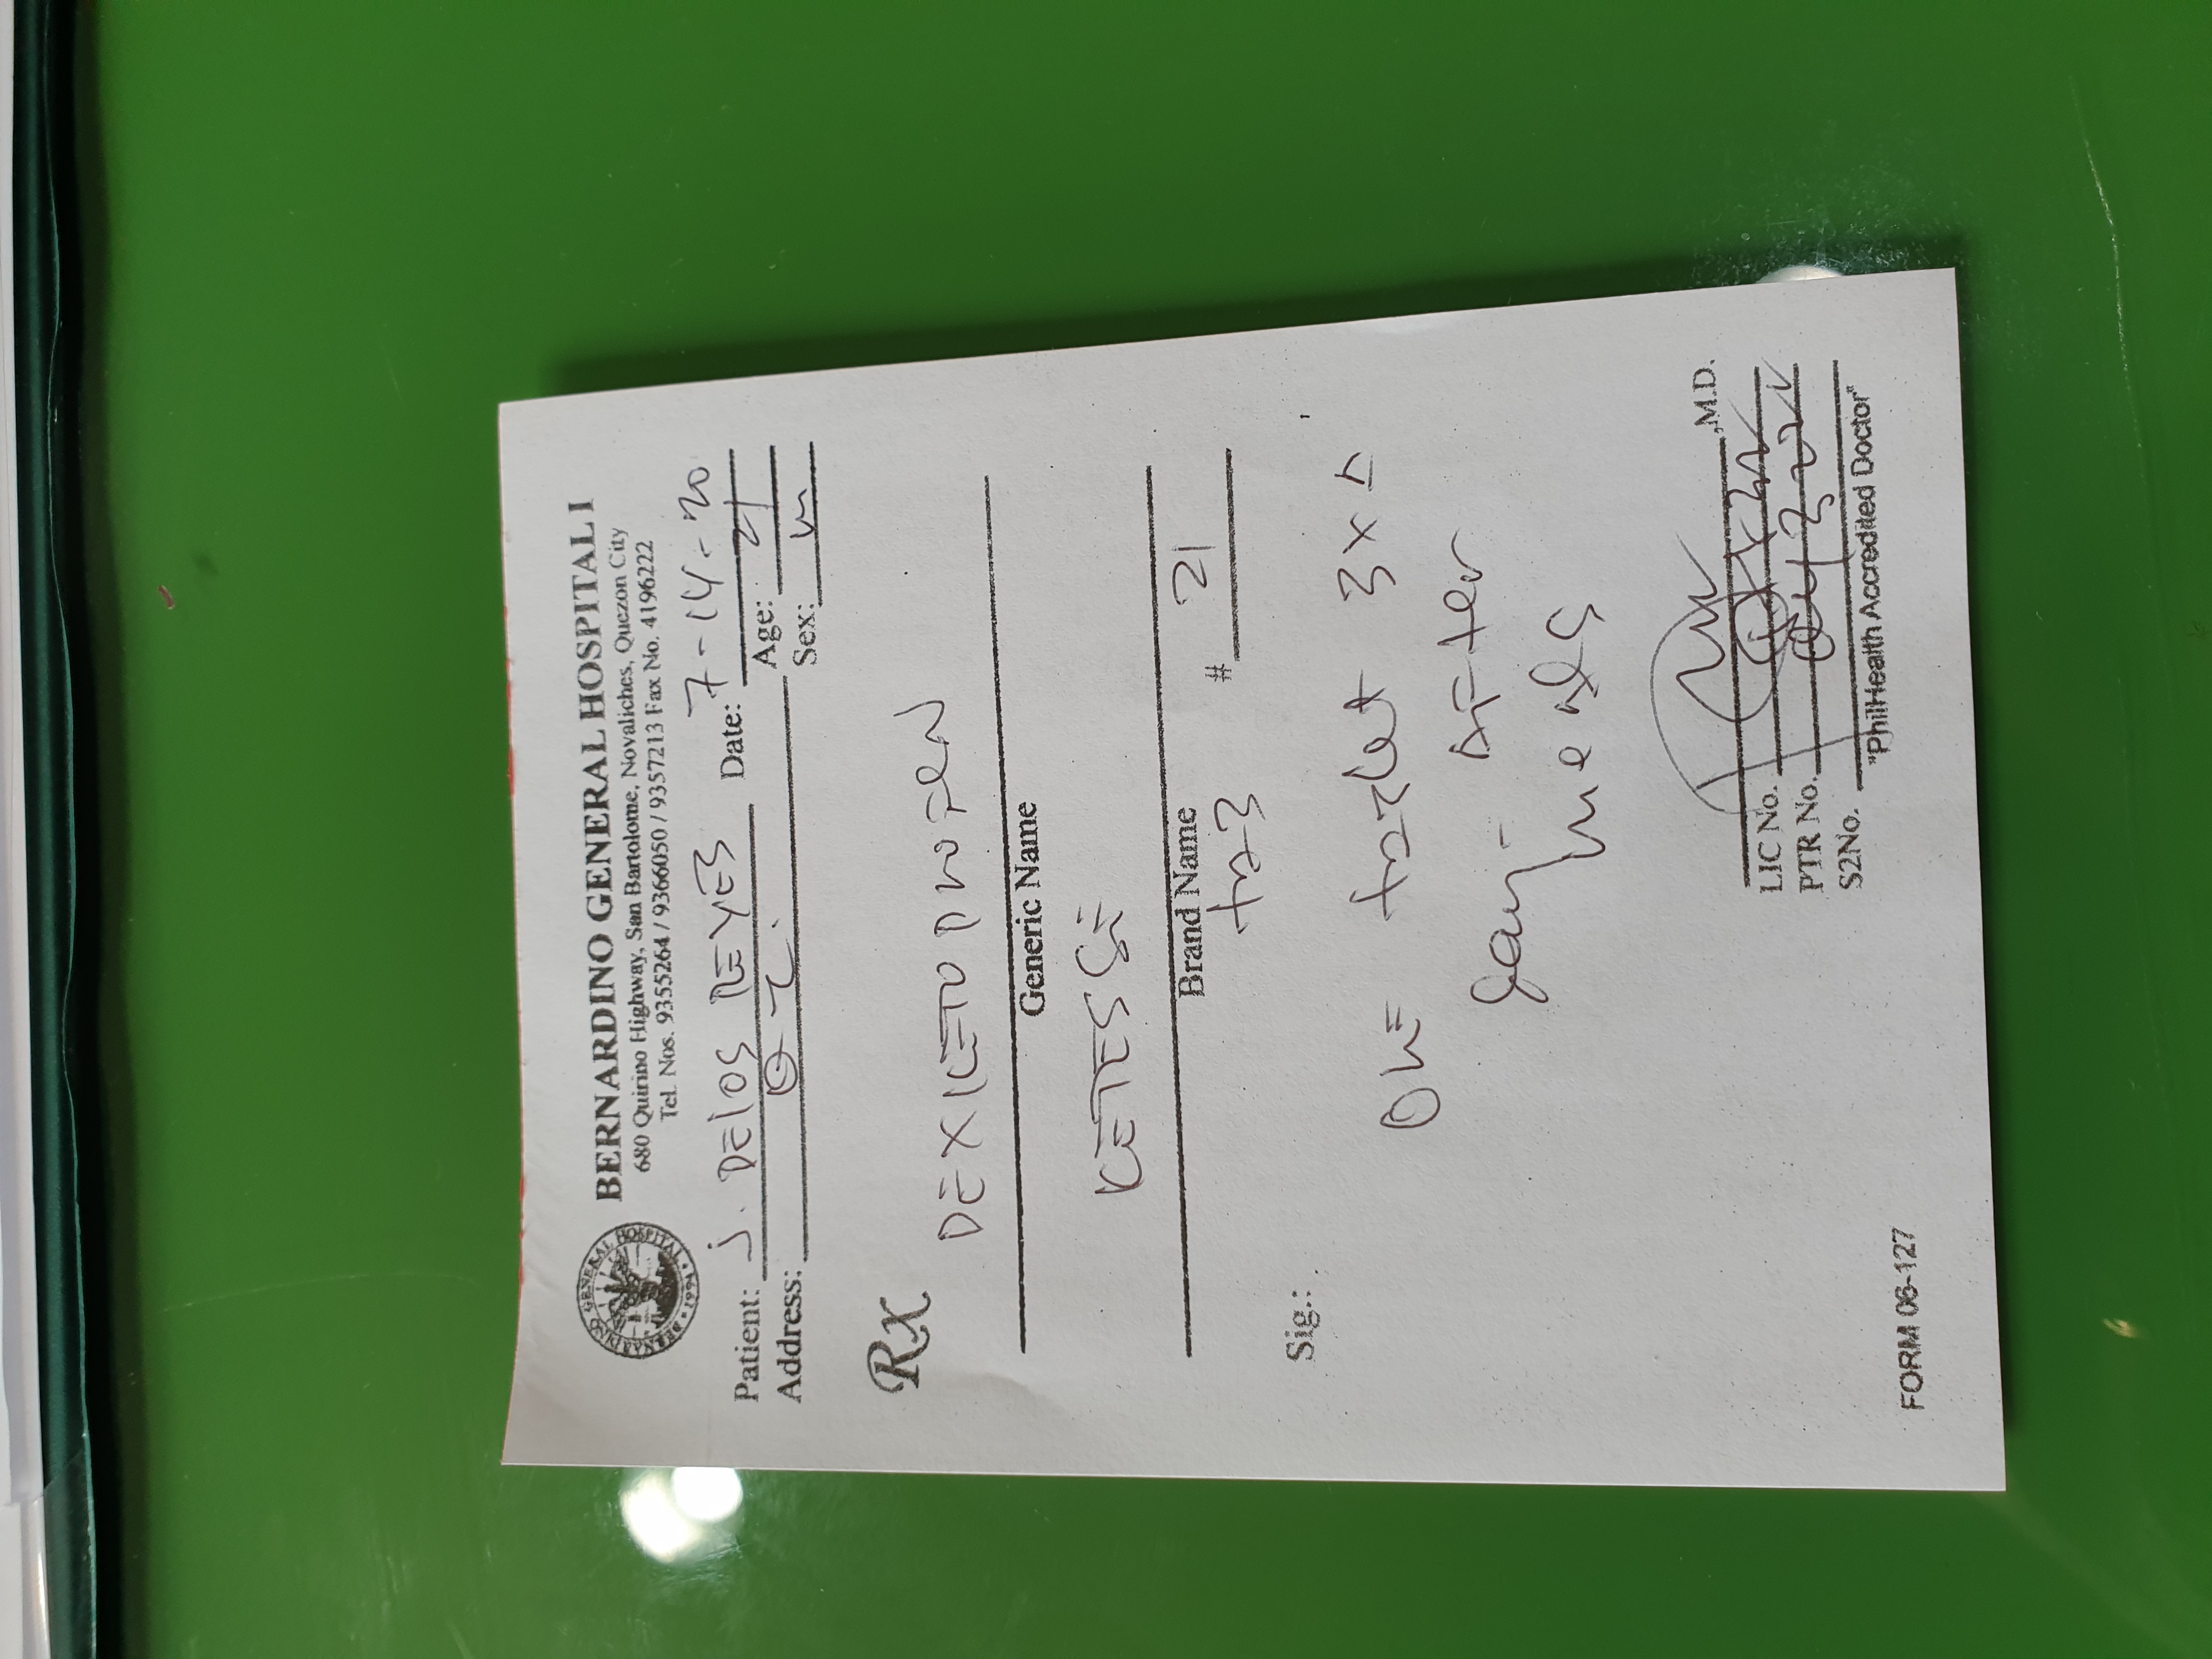 BERNARDINO GENERAL HOSPITAL I
680 Quirino Highway, San Bartolome, Novaliches, Quezon City
Tel. Nos. 9355264 / 9366050 / 9357213 Fax No. 4196222
BERNARDINO GENERAL HOSPITAL
• 1994 •
Patient: J. DElOS REYES Date: 7-14-20
Address: Q C. Age: 21
Sex: m
Rx
DEXKETOPROFEN
Generic Name
KETESSE
Brand Name
tab # 21
Sig.:
ONE tablet 3x A
day - AFter
meals
,M.D.
LIC No.
PTR No.
S2No.
"PhilHealth Accredited Doctor"
FORM 06-127